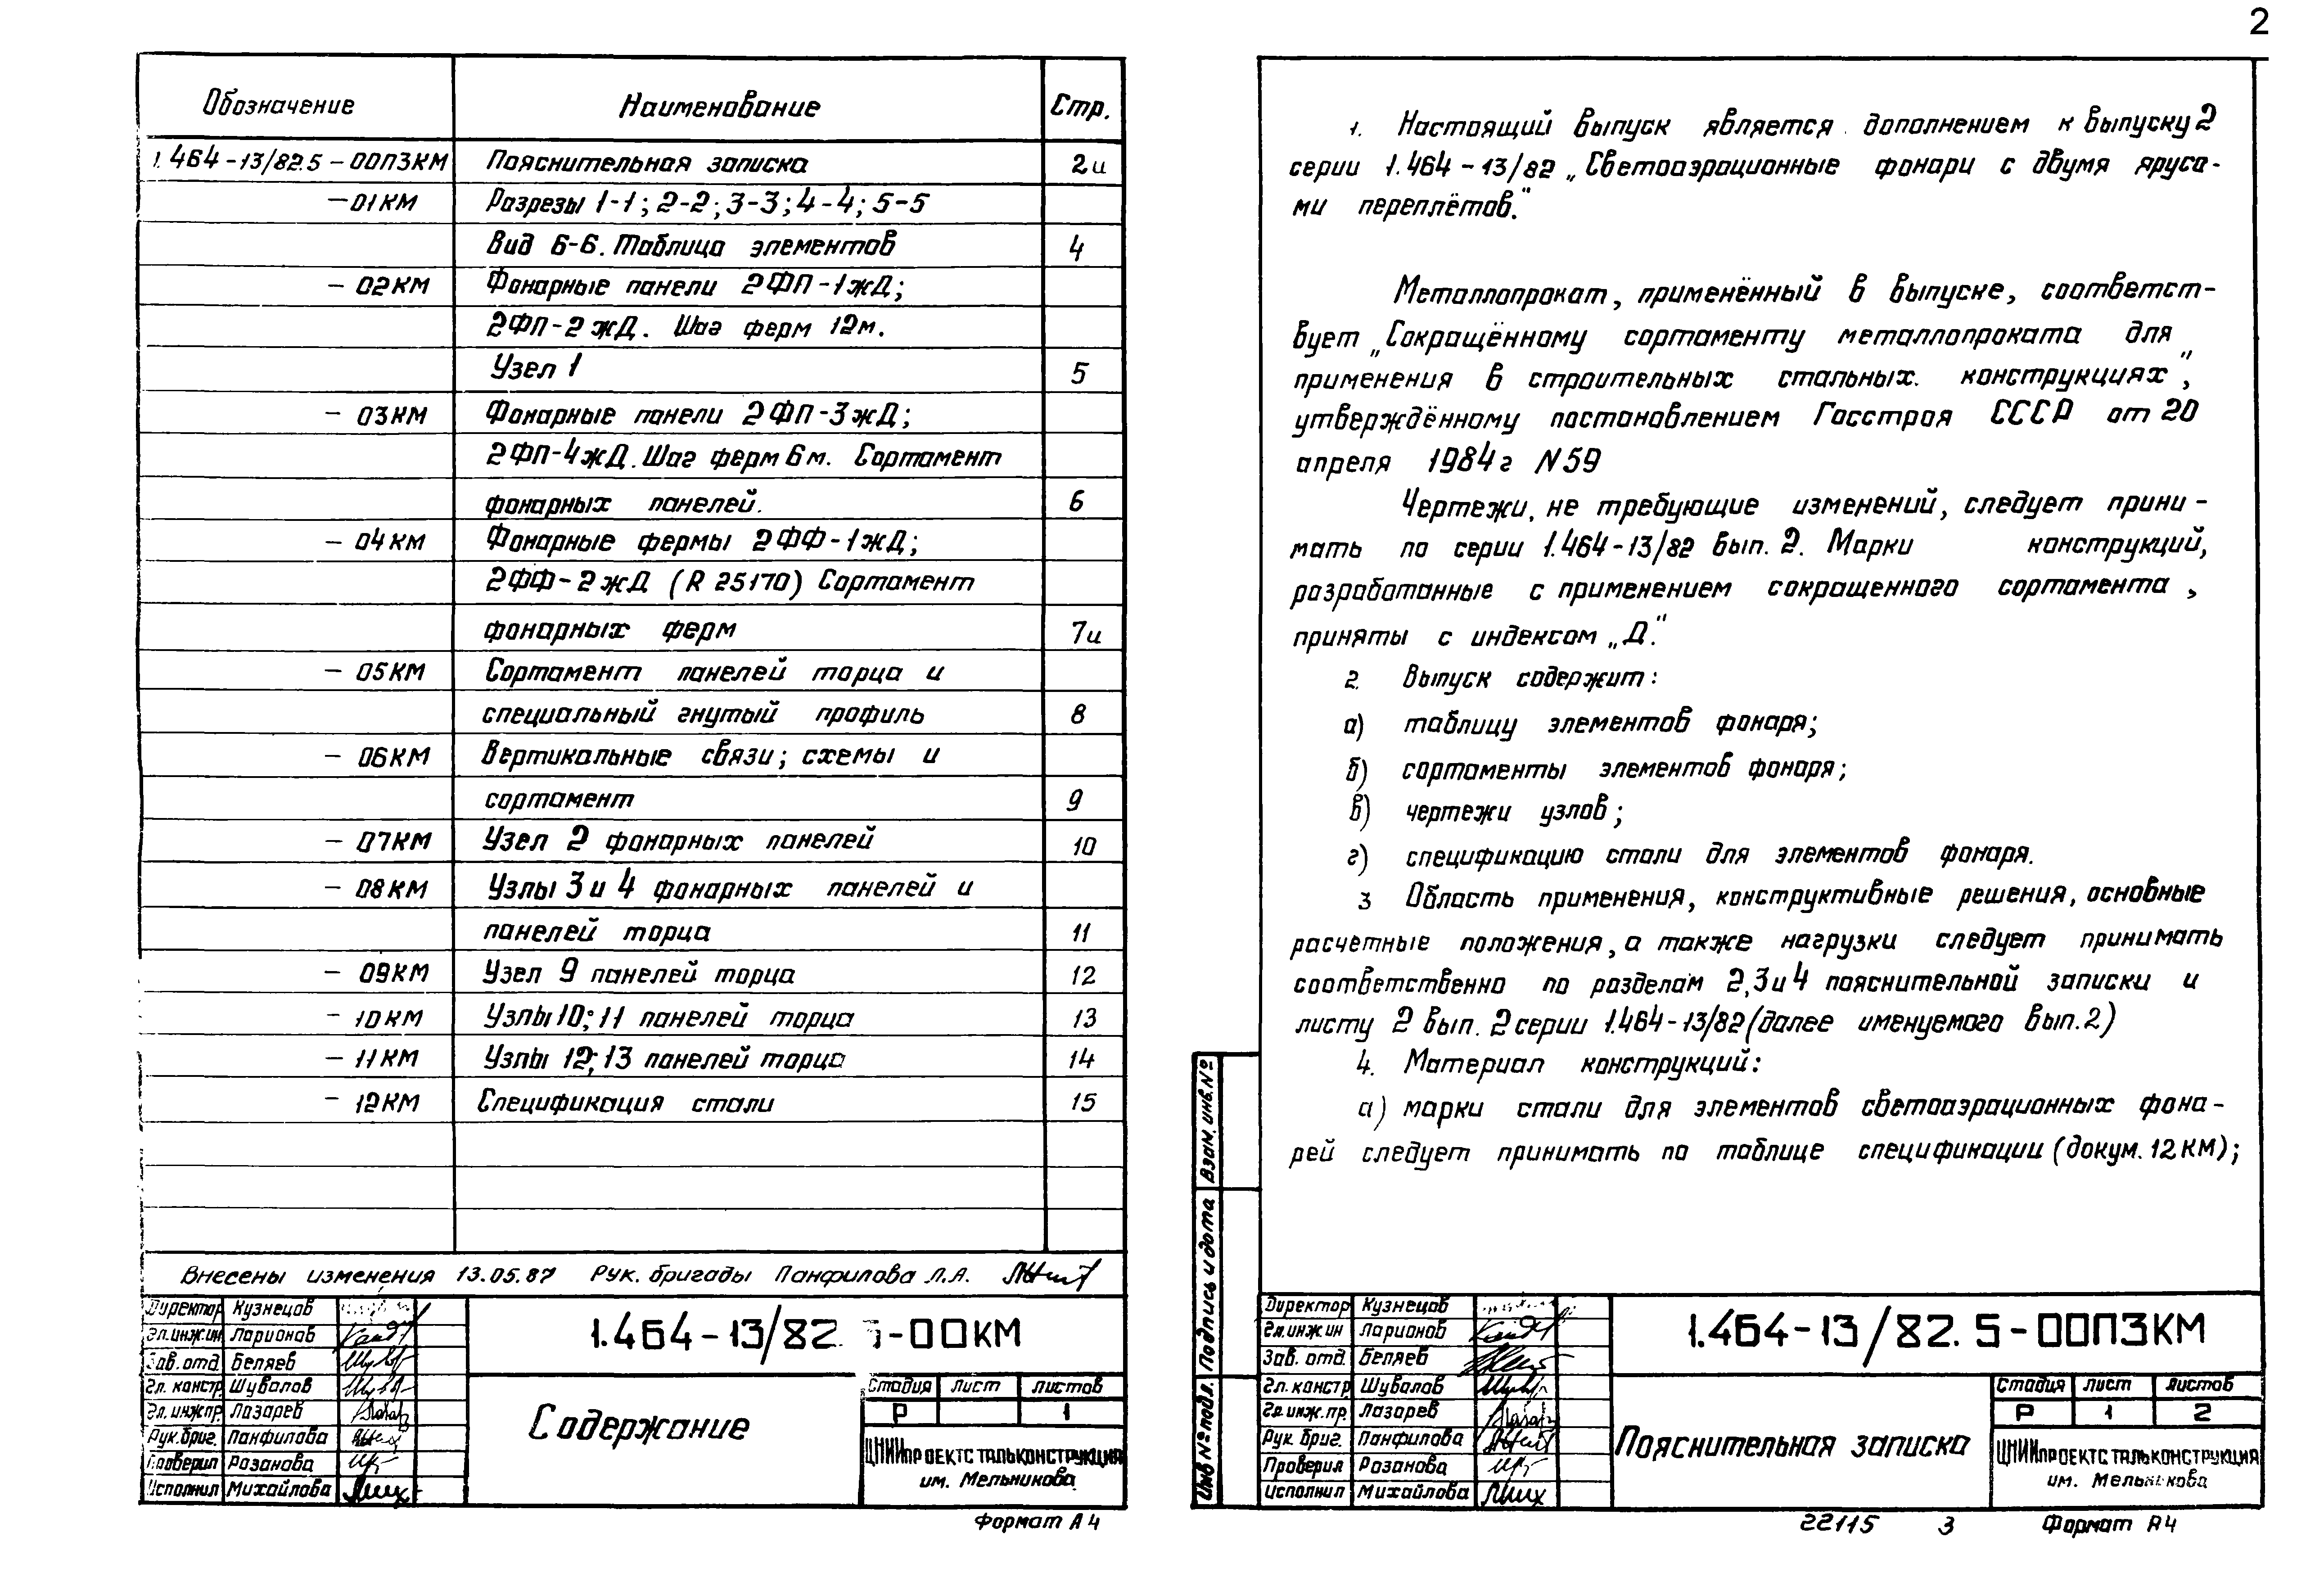 2
Обозначение Наименование Стр.
1.464-13/82.5-00ПЗКМ Пояснительная записка 2и
-01КМ Разрезы 1-1; 2-2; 3-3; 4-4; 5-5
Вид 6-6. Таблица элементов 4
- 02КМ Фонарные панели 2ФП-1жД;
2ФП-2жД. Шаг ферм 12м.
Узел 1 5
- 03КМ Фонарные панели 2ФП-3жД;
2ФП-4жД. Шаг ферм 6м. Сортамент
фонарных панелей. 6
- 04КМ Фонарные фермы 2ФФ-1жД;
2ФФ-2жД (R 25170) Сортамент
фонарных ферм 7и
- 05КМ Сортамент панелей торца и
специальный гнутый профиль 8
- 06КМ Вертикальные связи; схемы и
сортамент 9
- 07КМ Узел 2 фонарных панелей 10
- 08КМ Узлы 3 и 4 фонарных панелей и
панелей торца 11
- 09КМ Узел 9 панелей торца 12
- 10КМ Узлы 10; 11 панелей торца 13
- 11КМ Узлы 12; 13 панелей торца 14
- 12КМ Спецификация стали 15
Внесены изменения 13.05.87 Рук. бригады Панфилова Л.А.
Директор Кузнецов
Гл.инж.ин Ларионов
Зав. отд. Беляев
Гл. констр. Шувалов
Гл. инж.пр. Лазарев
Рук. бриг. Панфилова
Проверил Розанова
Исполнил Михайлова
1.464-13/82.5-00КМ
Содержание
Стадия Лист Листов
Р 1
ЦНИИпроектстальконструкция
им. Мельникова
Формат А4
1. Настоящий выпуск является дополнением к выпуску 2
серии 1.464-13/82 „Светоаэрационные фонари с двумя яруса-
ми переплётов."
Металлопрокат, применённый в выпуске, соответст-
вует „Сокращённому сортаменту металлопроката для
применения в строительных стальных. конструкциях",
утверждённому постановлением Госстроя СССР от 20
апреля 1984г N 59
Чертежи, не требующие изменений, следует прини-
мать по серии 1.464-13/82 вып. 2. Марки конструкций,
разработанные с применением сокращенного сортамента,
приняты с индексом „Д."
2. Выпуск содержит:
а) таблицу элементов фонаря;
б) сортаменты элементов фонаря;
в) чертежи узлов;
г) спецификацию стали для элементов фонаря.
3 Область применения, конструктивные решения, основные
расчетные положения, а также нагрузки следует принимать
соответственно по разделам 2, 3 и 4 пояснительной записки и
листу 2 вып. 2 серии 1.464-13/82 (далее именуемого вып. 2)
4. Материал конструкций:
а) марки стали для элементов светоаэрационных фона-
рей следует принимать по таблице спецификации (докум. 12КМ);
Взам. инв. №
Подпись и дата
Инв № подл.
Директор Кузнецов
Гл.инж.ин Ларионов
Зав. отд. Беляев
Гл. констр Шувалов
Гл. инж.пр. Лазарев
Рук. бриг. Панфилова
Проверил Розанова
Исполнил Михайлова
1.464-13/82.5-00ПЗКМ
Пояснительная записка
Стадия Лист Листов
Р 1 2
ЦНИИпроектстальконструкция
им. Мельникова
22115 3 Формат А4